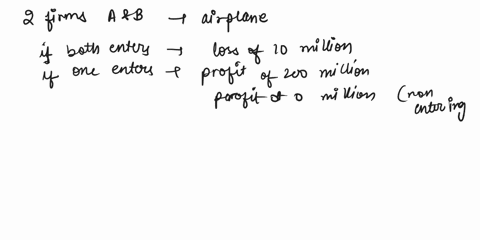 2 firms A & B → airplane
if both enters → loss of 10 million
if one enters → profit of 200 million
profit of 0 million (non
entering